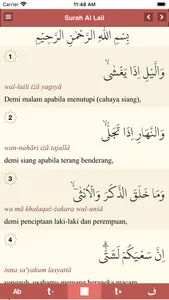 11:48 AM
Surah Al Lail
بِسْمِ اللّٰهِ الرَّحْمٰنِ الرَّحِيْمِ
1
وَالَّيْلِ اِذَا يَغْشٰىۙ
wal-laili iżā yagsyā
Demi malam apabila menutupi (cahaya siang),
2
وَالنَّهَارِ اِذَا تَجَلّٰىۙ
wan-nahāri iżā tajallā
demi siang apabila terang benderang,
3
وَمَا خَلَقَ الذَّكَرَ وَالْاُنْثٰىٓۙ
wa mā khalaqaż-żakara wal-unṡā
demi penciptaan laki-laki dan perempuan,
4
اِنَّ سَعْيَكُمْ لَشَتّٰىۗ
inna sa‘yakum lasyattā
sungguh, usahamu memang beraneka macam.
Ab